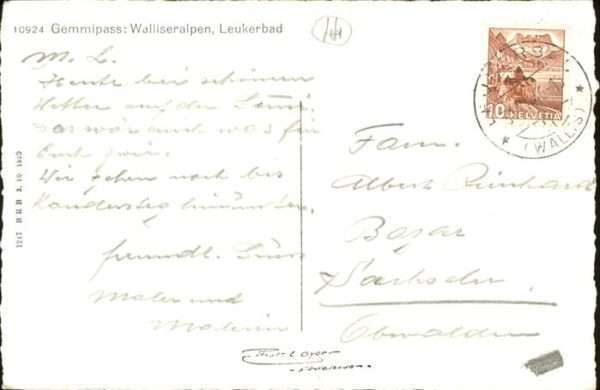 10924 Gemmipass: Walliseralpen, Leukerbad
M. L.
Heute bei schönem
Wetter auf der Gemmi.
Das wär auch was für
Euch zwei.
Wir gehen noch bis
Kandersteg hinunter.
freundl. Grüsse
Maler und
Malerin
Fam.
Albert Reinhard
Bazar
Sachseln.
Obwalden
10 HELVETIA
(WALLIS)